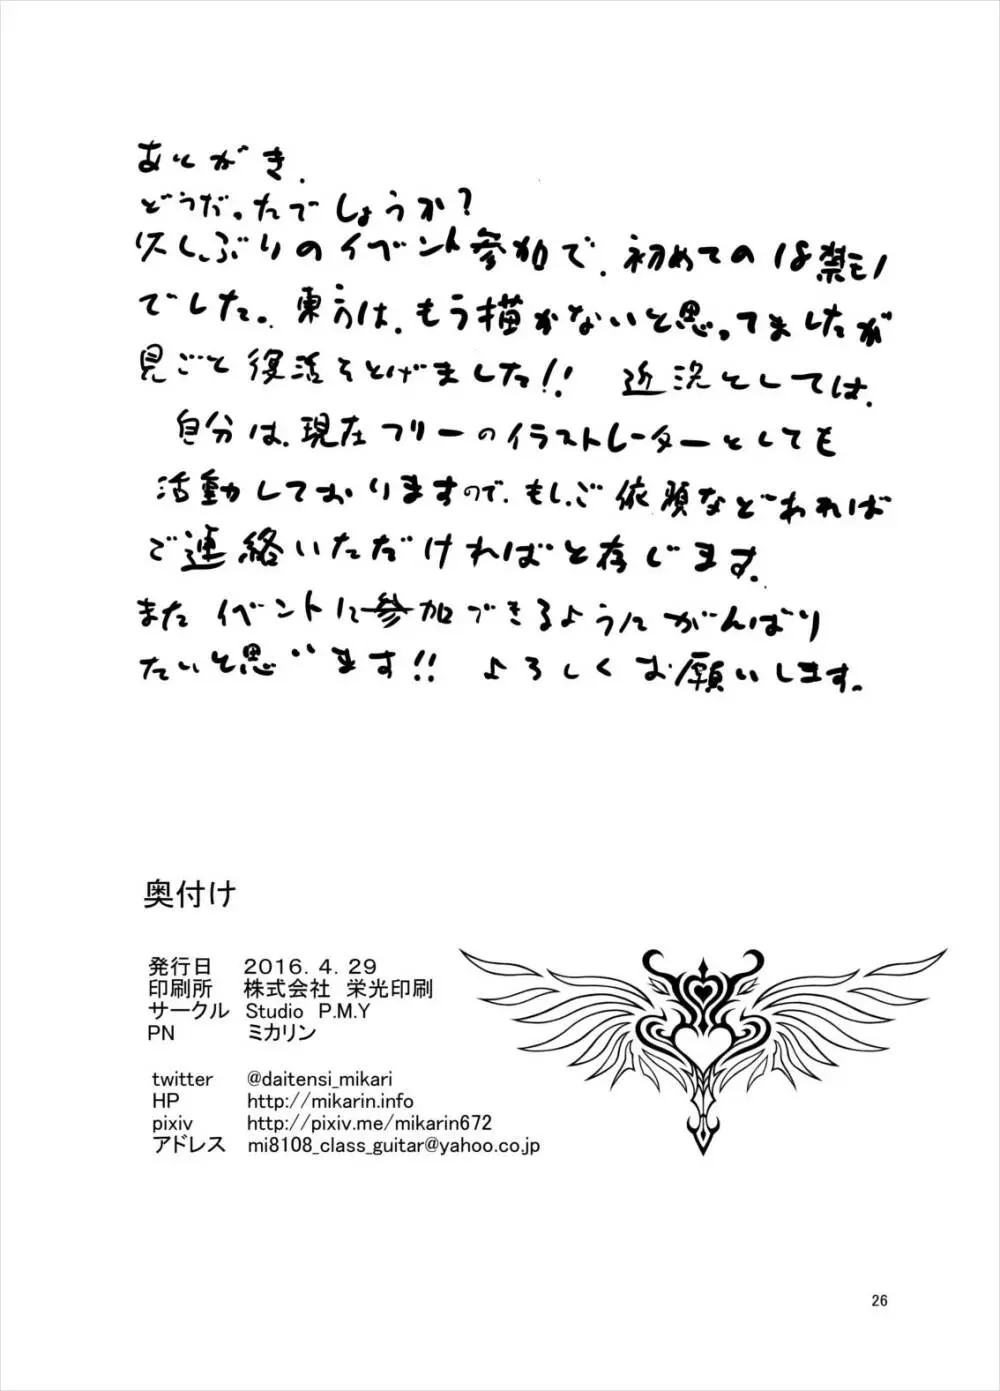 あとがき.
どうだったでしょうか?
久しぶりのイベント参加で、初めての18禁モノ
でした。東方は、もう描かないと思ってましたが
見ごと復活をとげました!! 近況としては、
自分は、現在フリーのイラストレーターとしても
活動しておりますので、もしご依頼などあれば
ご連絡いただければと存じます.
またイベントに参加できるようにがんばり
たいと思います!! よろしくお願いします。
奥付け
発行日 2016. 4. 29
印刷所 株式会社 栄光印刷
サークル Studio P.M.Y
PN ミカリン
twitter @daitensi_mikari
HP http://mikarin.info
pixiv http://pixiv.me/mikarin672
アドレス mi8108_class_guitar@yahoo.co.jp
26